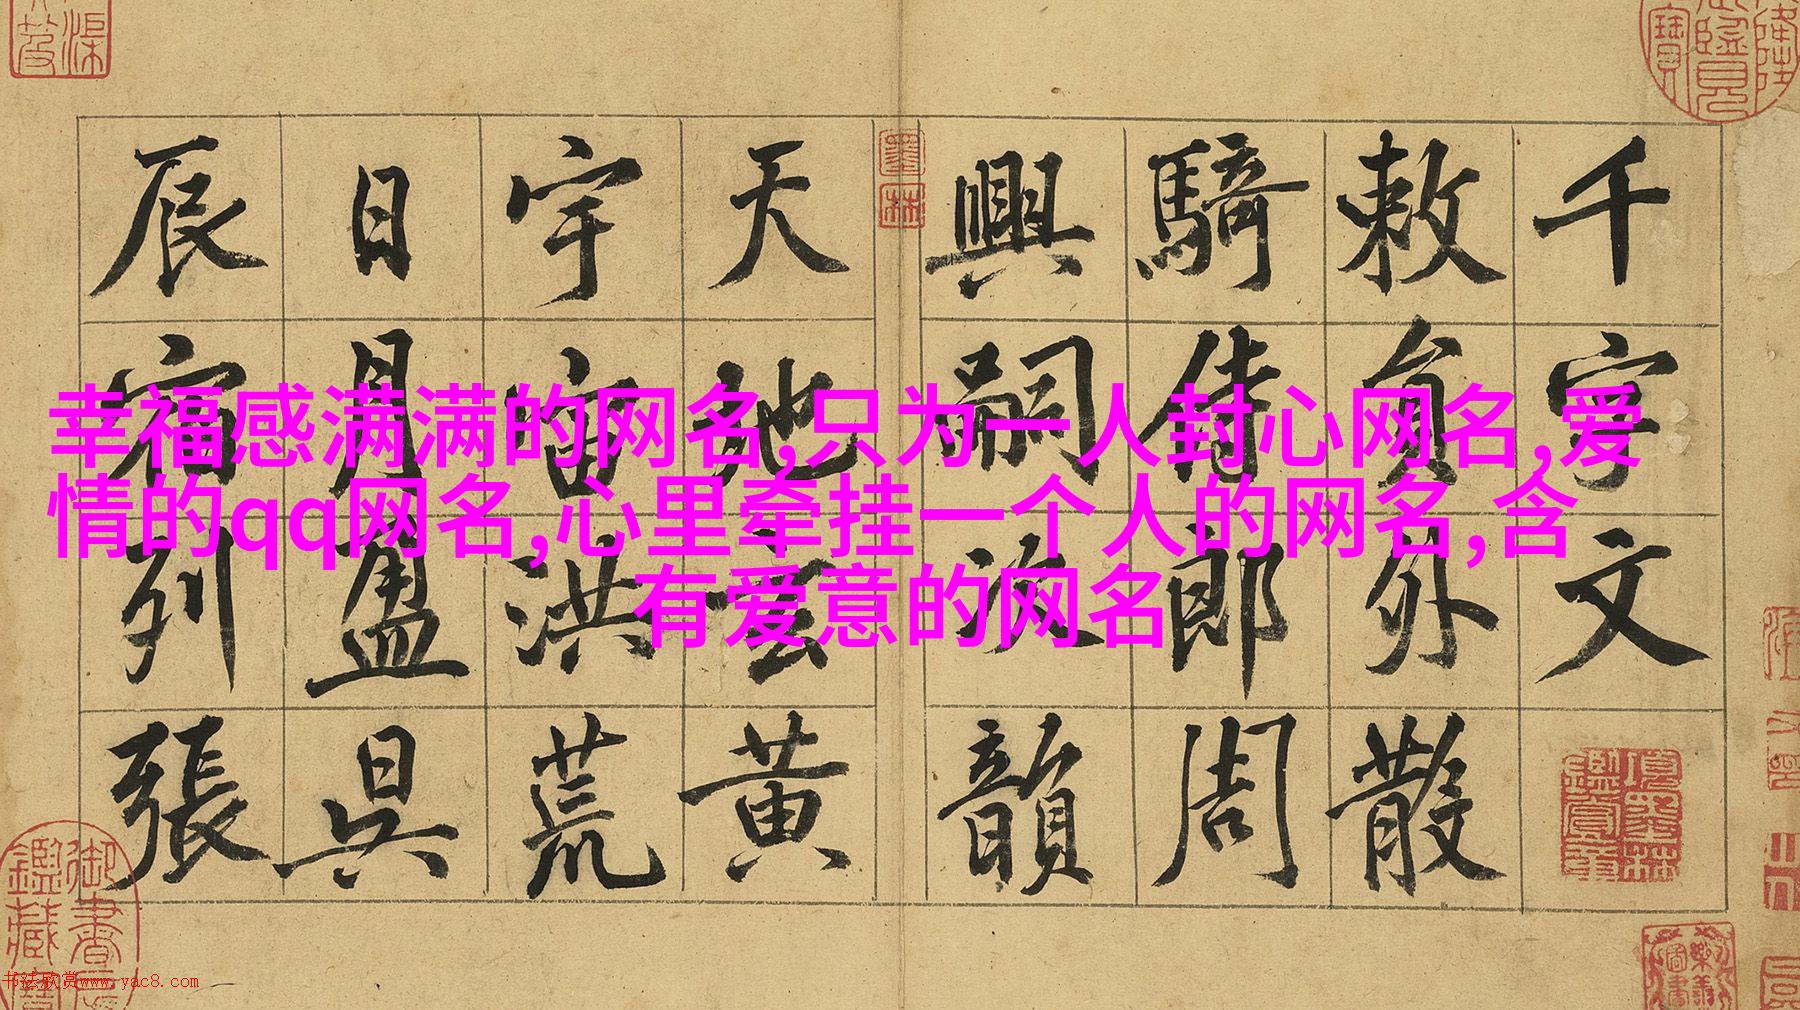 幸福感满满的网名,只为一人封心网名,爱
情的qq网名,心里牵挂一个人的网名,含
有爱意的网名
千字文
敕員外散
騎侍郎周
興嗣次韻
天地玄黄
宇宙洪荒
日月盈昃
辰宿列張
墨林
项墨林鑑賞章
书法欣赏www.yac8.com